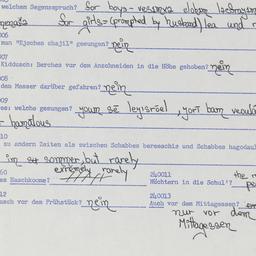 welchem Segensspruch? for boys -
for girls = (prompted by husband) lea und r
006
man "Ejsches chajil" gesungen? nein
007
Kiddusch: Becher vor dem Anschneiden in die Höhe gehoben? nein
008
dem Messer darüber gefahren? nein
009
es: welche gesungen? youm sē leyisroel, yort bam
- hamálous
10
zu andern Zeiten als zwischen Schabbes bereeschis und Schabbes hagodaul
im sommer, but rarely
60 extremely rarely 240011 the
es Haschkoome? Töchtern in die Schul'?
12 240013
usch vor dem Frühstück? nein Auch vor dem Mittagessen?
nur vor dem
Mittagessen